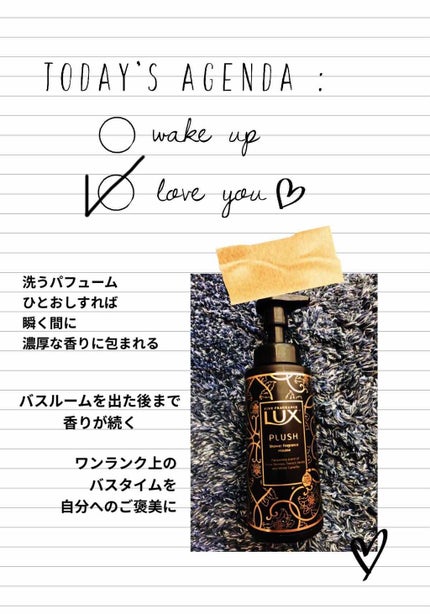 TODAY'S AGENDA :
wake up
love you
洗うパフューム
ひとおしすれば
瞬く間に
濃厚な香りに包まれる
バスルームを出た後まで
香りが続く
ワンランク上の
バスタイムを
自分へのご褒美に
LUX
PLUSH
Shower fragrance
mousse